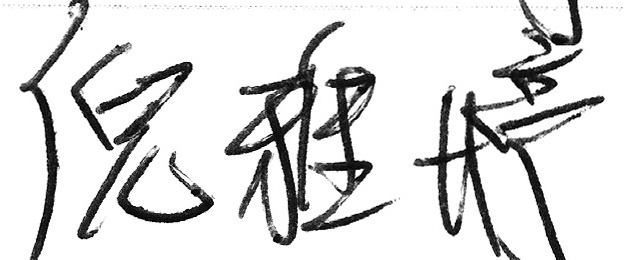 倪雅婷